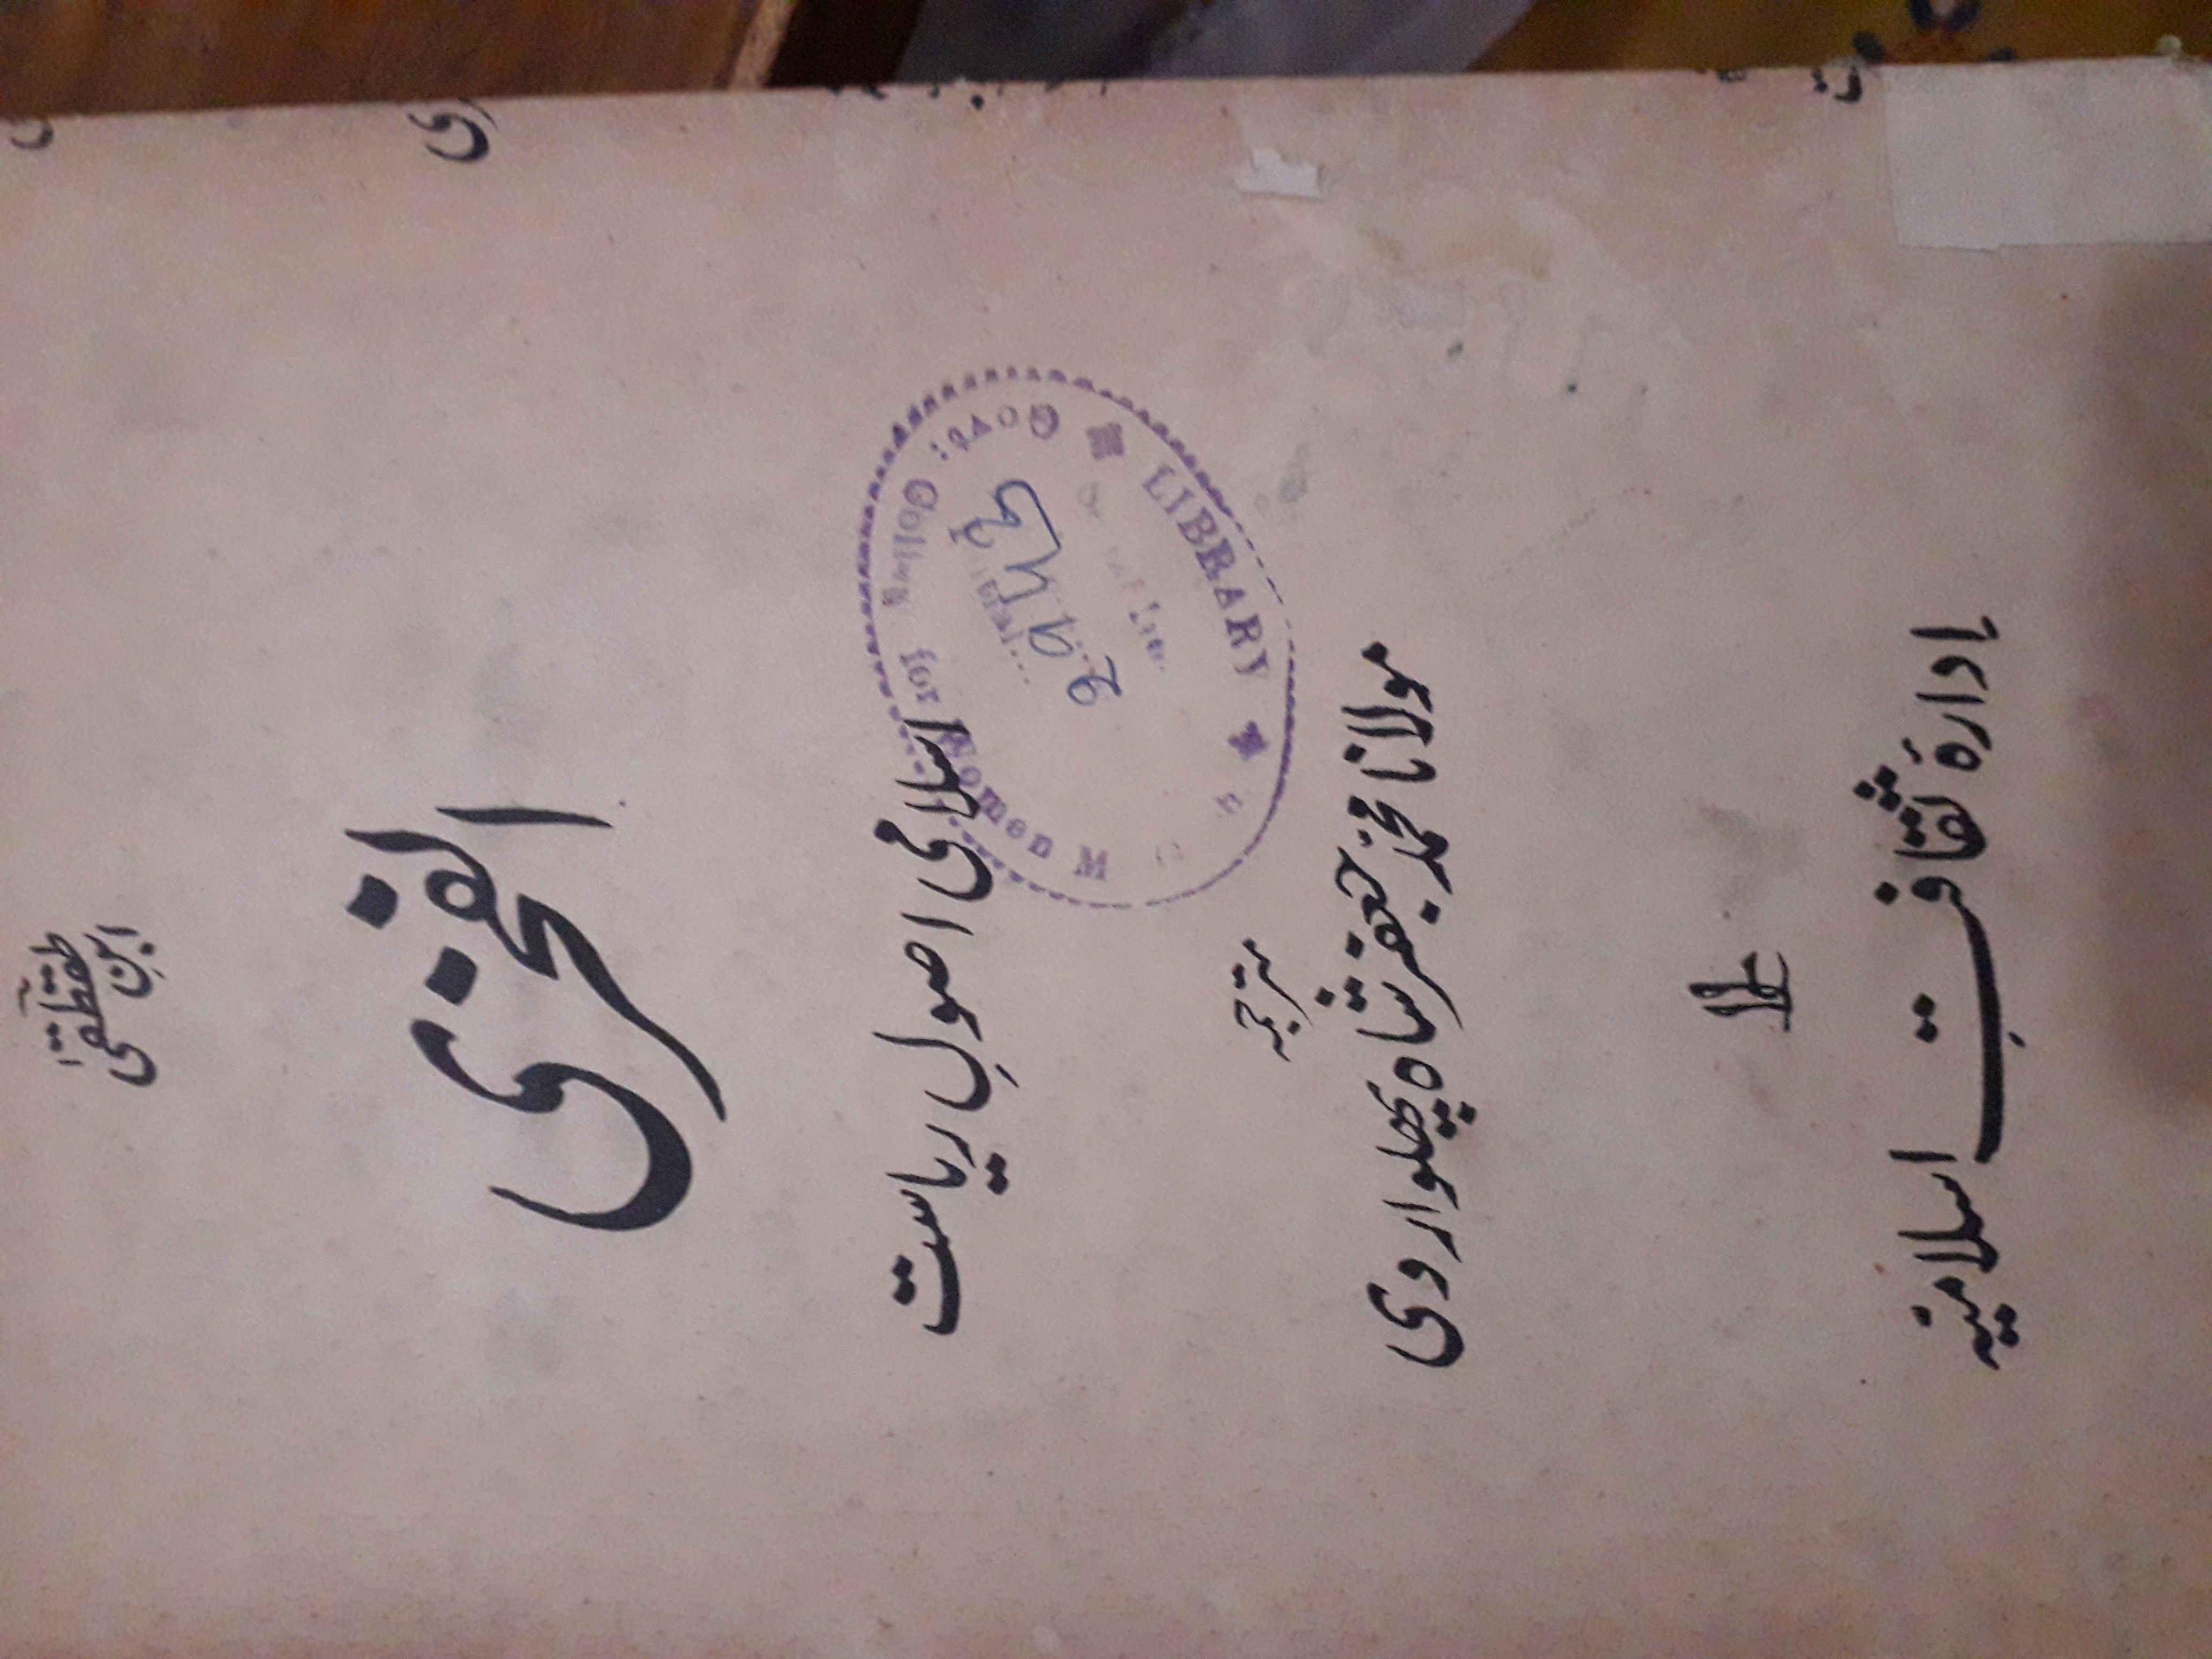 ابنِ
طقطقیٰ
الفخری
اسلامی اصولِ ریاست
ترجمہ
مولانا محمد جعفر شاہ پھلواروی
ادارہ ثقافتِ اسلامیہ
LIBRARY
Govt: College for Women